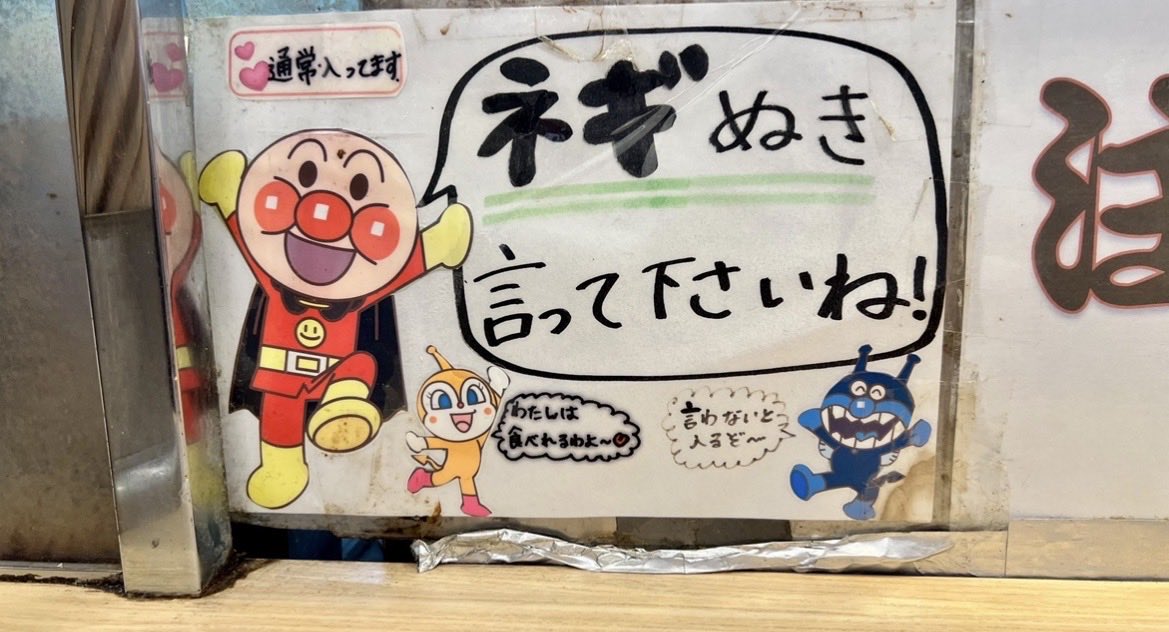 通常入ってます
ネギぬき
言って下さいね!
わたしは
食べれるわよ〜
言わないと
入るぞ〜
注